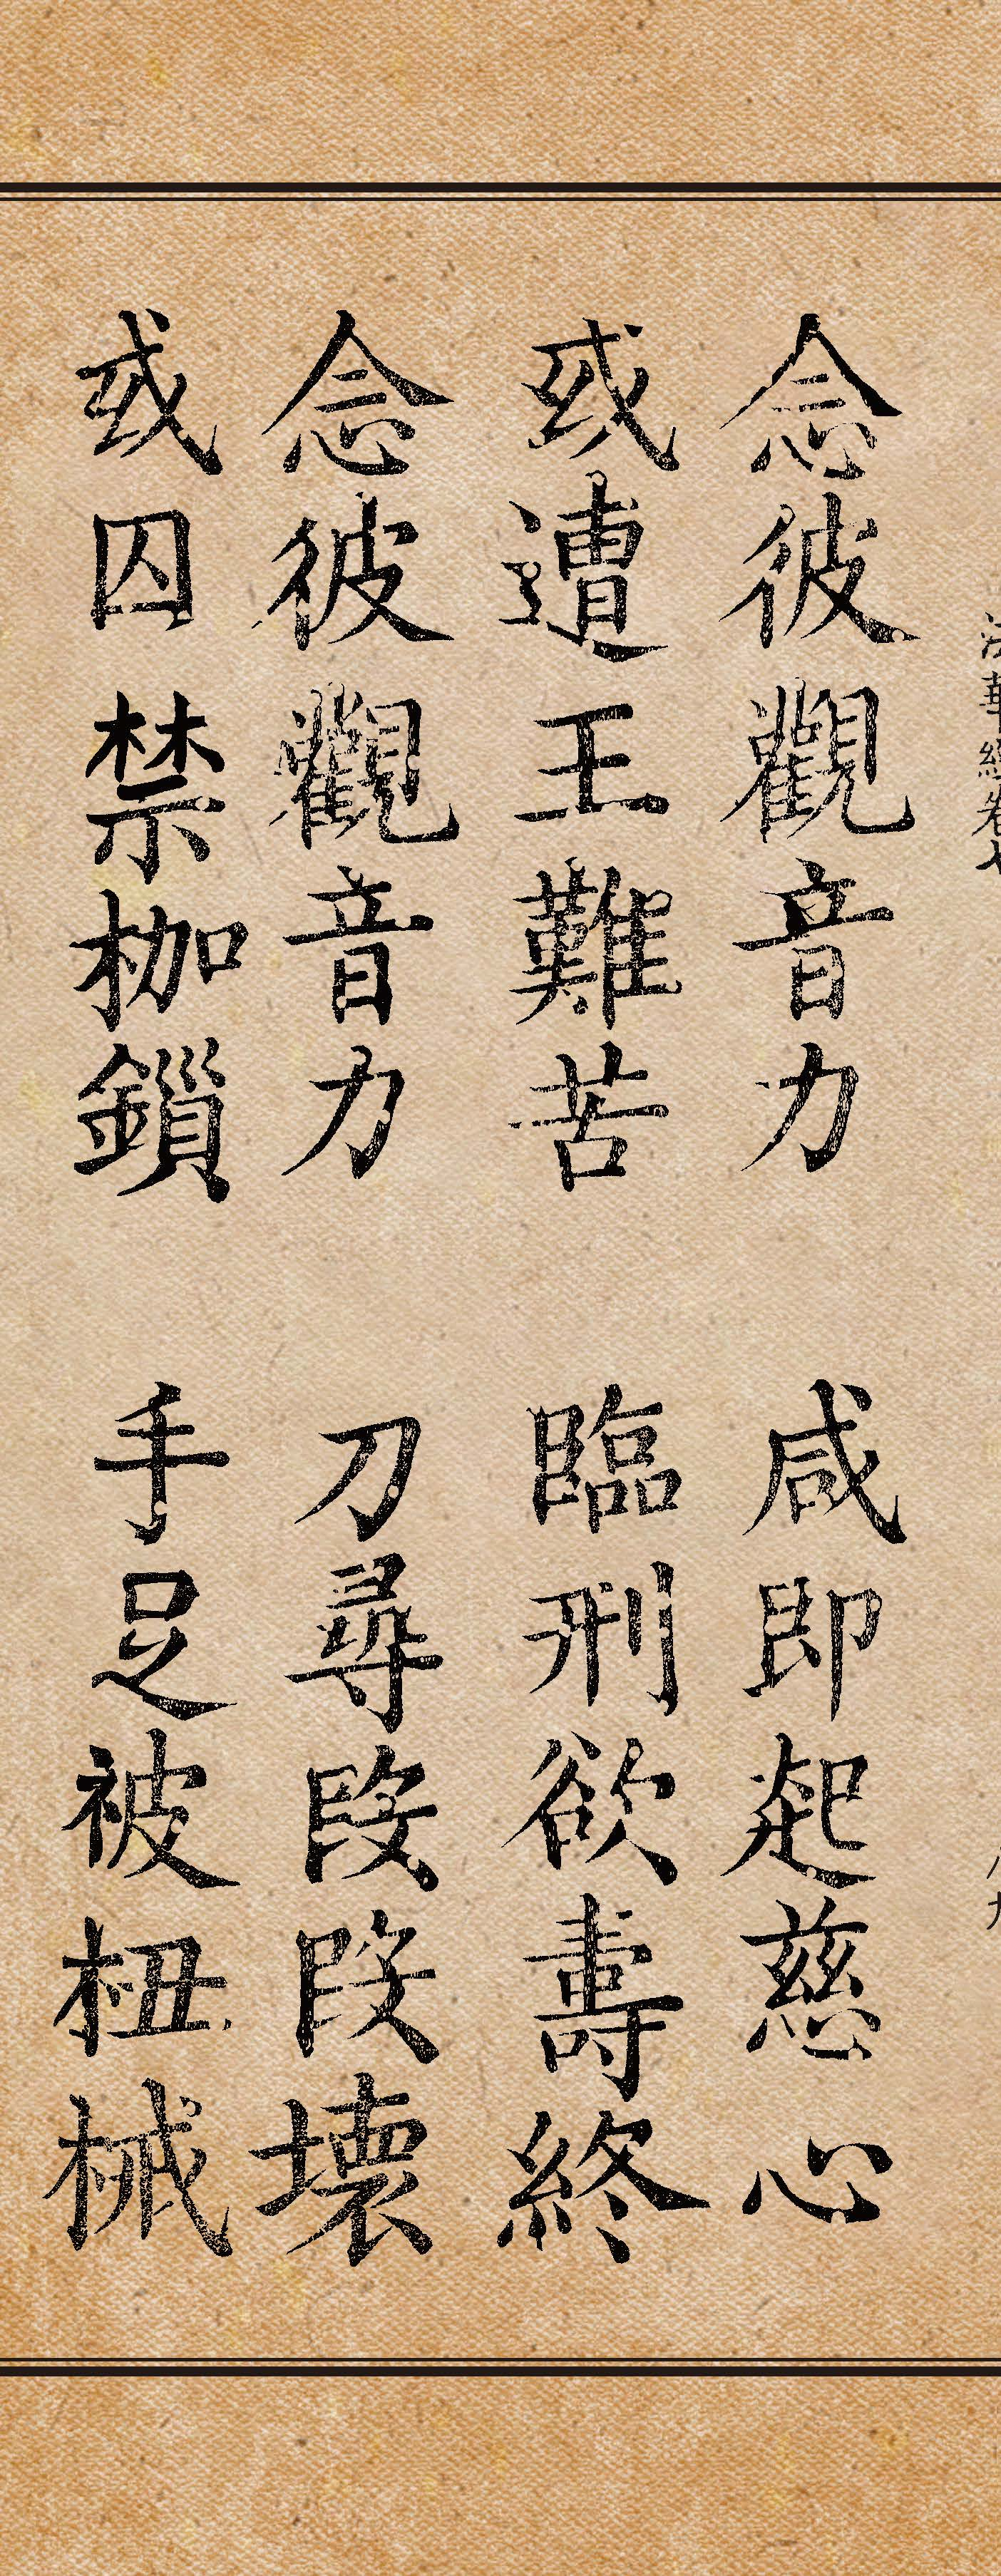 法華經卷七
念彼觀音力　咸即起慈心
或遭王難苦　臨刑欲壽終
念彼觀音力　刀尋段段壞
或囚禁枷鎖　手足被杻械